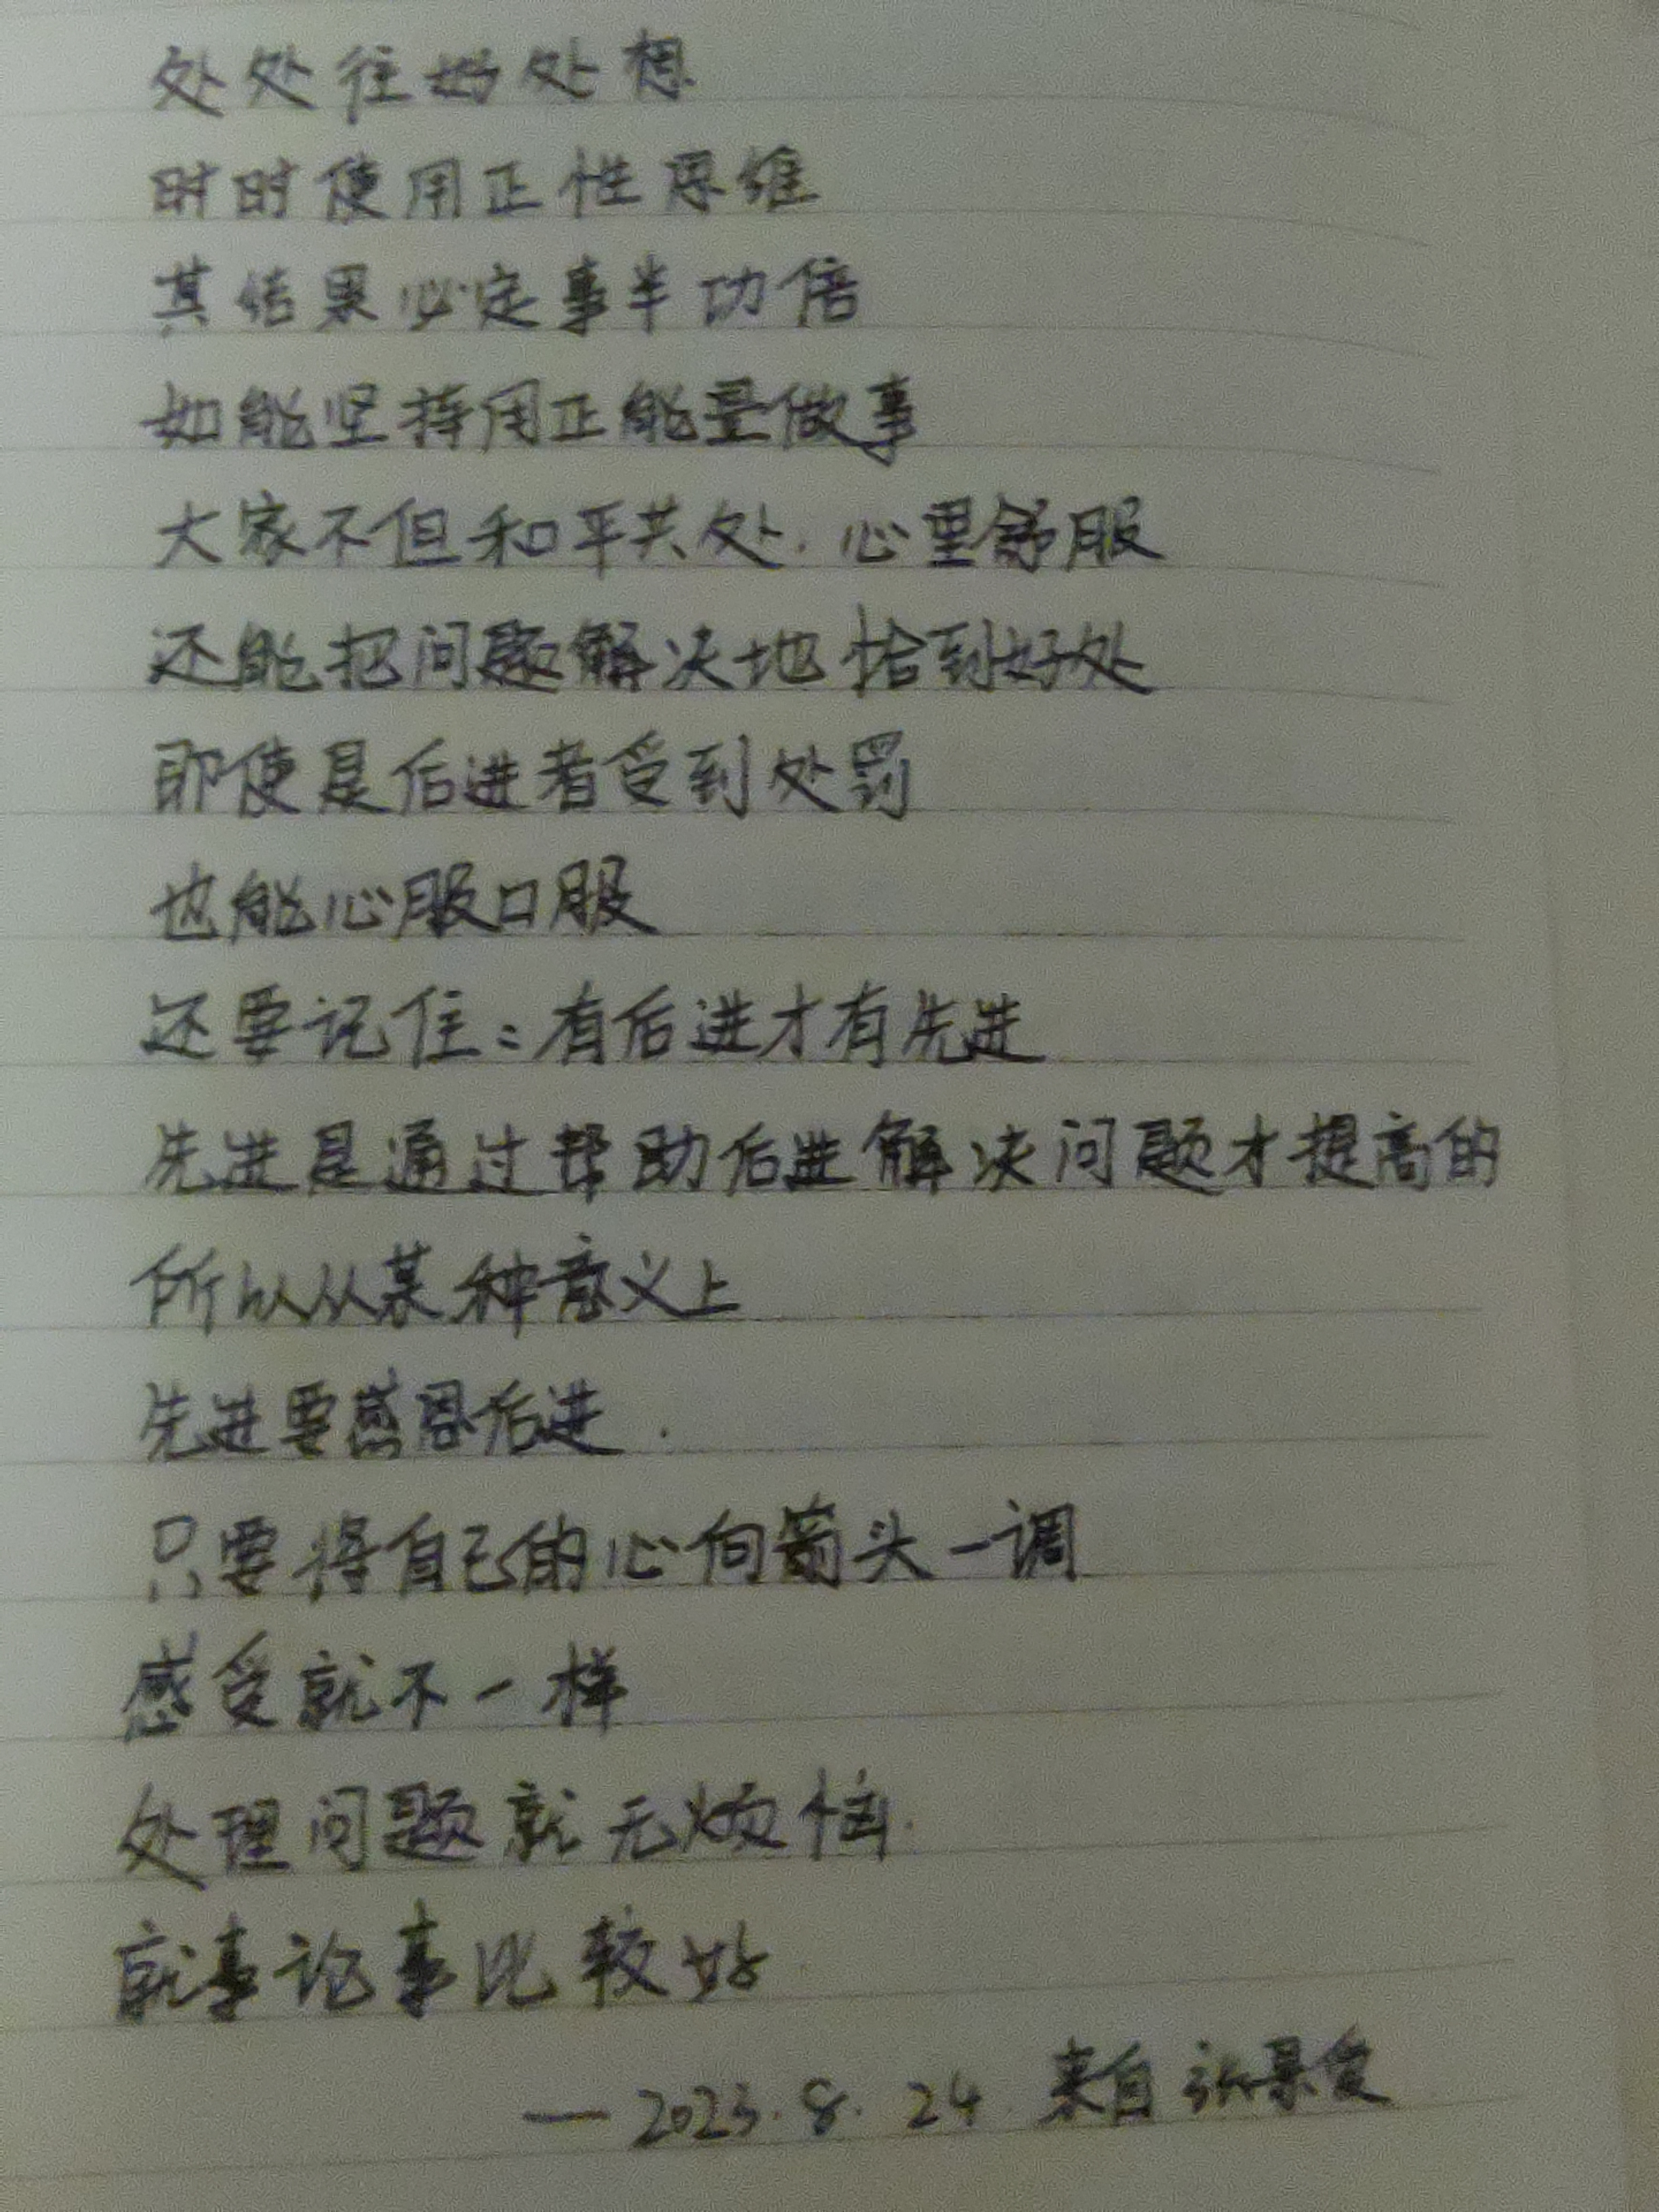 处处往好处想
时时使用正性思维
其结果必定事半功倍
如能坚持用正能量做事
大家不但和平共处.心里舒服
还能把问题解决地恰到好处
即使是后进者受到处罚
也能心服口服
还要记住:有后进才有先进
先进是通过帮助后进解决问题才提高的
所以从某种意义上
先进要感恩后进.
只要将自己的心向箭头一调
感受就不一样
处理问题就无烦恼.
就事论事比较好
—2023.8.24 来自张景